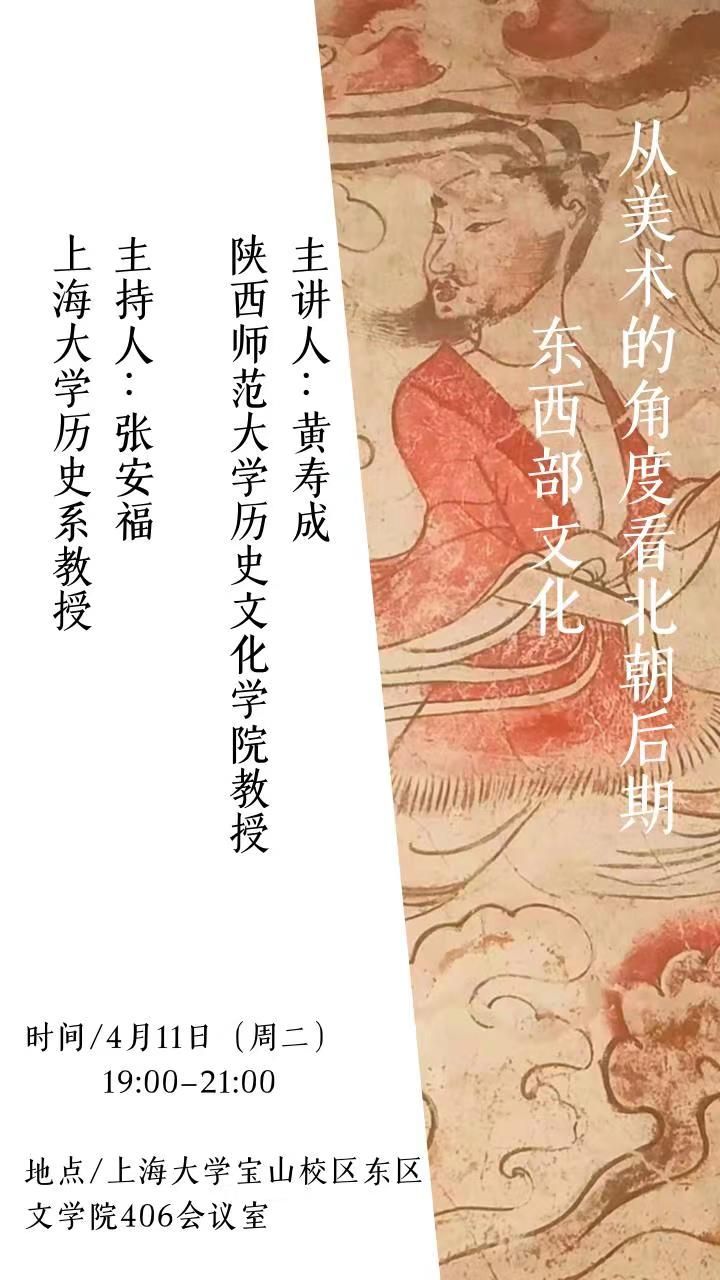 从美术的角度看北朝后期
东西部文化
主讲人：黄寿成
陕西师范大学历史文化学院教授
主持人：张安福
上海大学历史系教授
时间/4月11日（周二）
19:00-21:00
地点/上海大学宝山校区东区
文学院406会议室